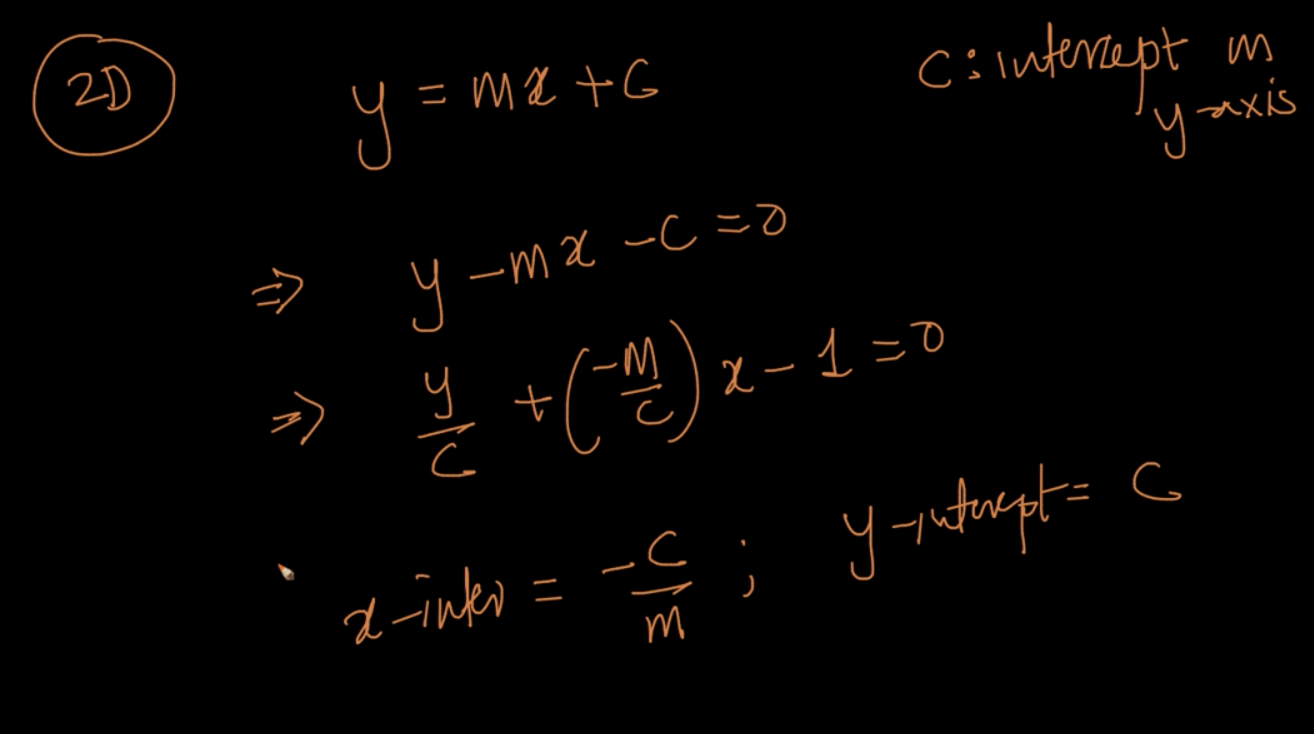 2D
y = mx + C
C: intercept on
y-axis
⇒ y - mx - c = 0
⇒ y/C + (-m/c) x - 1 = 0
x-inter = -c/m ; y-intercept = C